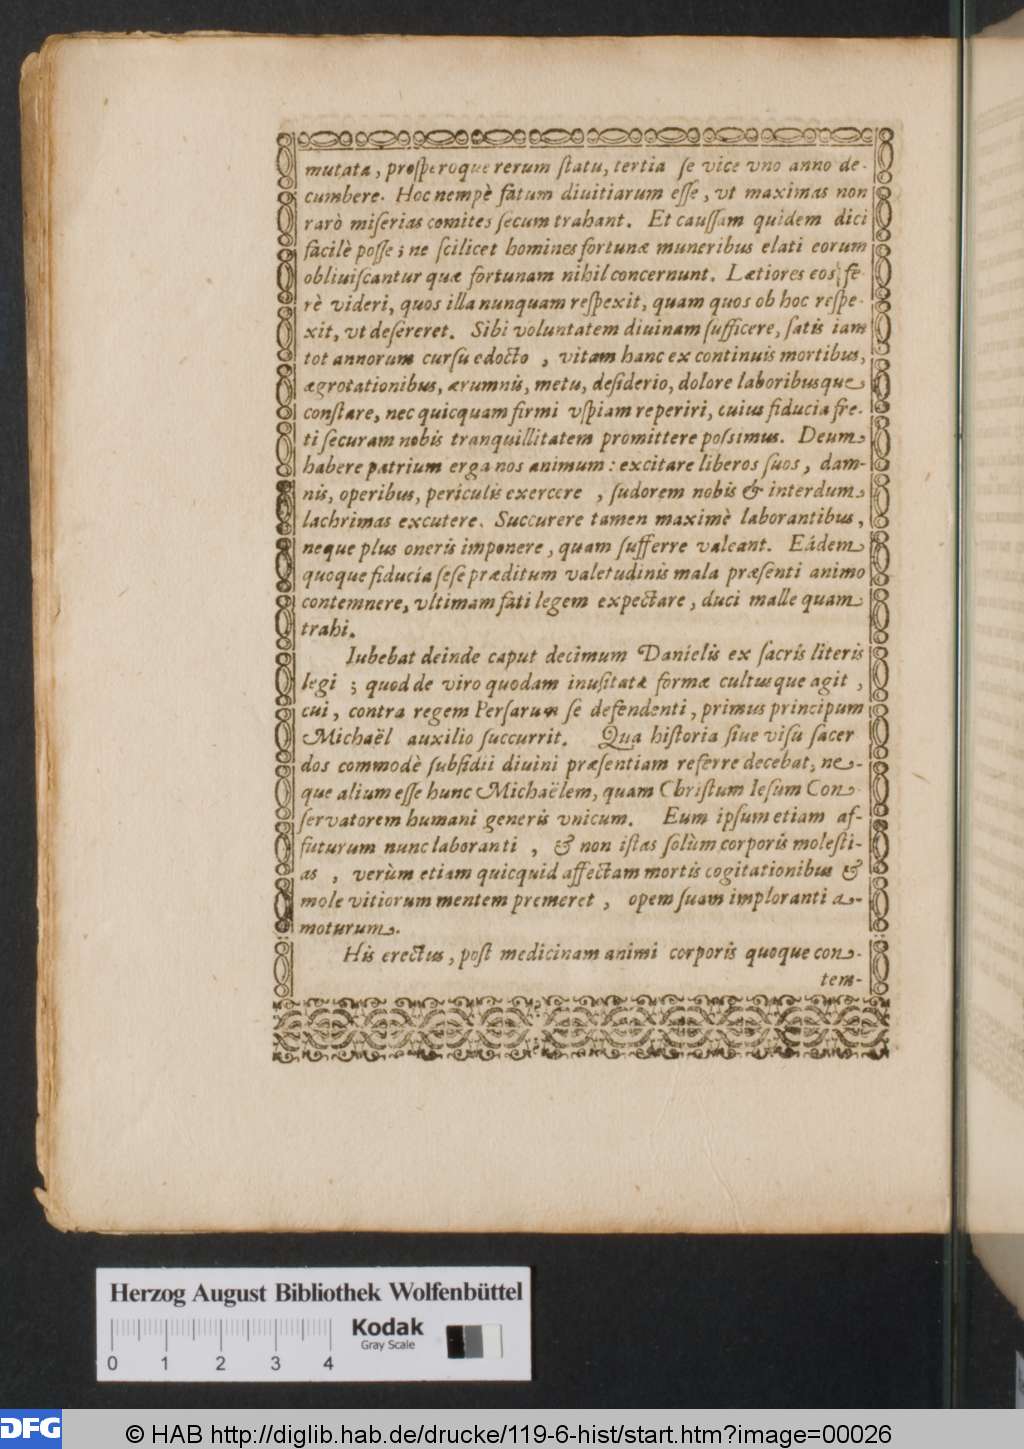 mutata, prosperoque rerum ſtatu, tertia ſe vice vno anno de-
cumbere. Hoc nempè fatum diuitiarum eſſe, vt maximas non
rarò miſerias comites ſecum trahant. Et cauſſam quidem dici
facilè poſſe; ne ſcilicet homines fortunæ muneribus elati eorum
obliuiſcantur quæ fortunam nihil concernunt. Lætiores eos fe-
rè videri, quos illa nunquam reſpexit, quam quos ob hoc reſpe-
xit, vt deſereret. Sibi voluntatem diuinam ſufficere, ſatis iam
tot annorum curſu edocto, vitam hanc ex continuis mortibus,
ægrotationibus, ærumnis, metu, deſiderio, dolore laboribusque
conſtare, nec quicquam firmi vſpiam reperiri, cuius fiducia fre-
ti ſecuram nobis tranquillitatem promittere poſsimus. Deum
habere patrium erga nos animum: excitare liberos ſuos, dam-
nis, operibus, periculis exercere, ſudorem nobis & interdum
lachrimas excutere. Succurere tamen maximè laborantibus,
neque plus oneris imponere, quam ſufferre valeant. Eâdem
quoque fiducia ſeſe præditum valetudinis mala præſenti animo
contemnere, vltimam fati legem expectare, duci malle quam
trahi.
Iubebat deinde caput decimum Danielis ex ſacris literis
legi; quod de viro quodam inuſitatæ formæ cultusque agit,
cui, contra regem Perſarum ſe defendenti, primus principum
Michaël auxilio ſuccurrit. Qua hiſtoria ſiue viſu ſacer
dos commodè ſubſidii diuini præſentiam referre decebat, ne-
que alium eſſe hunc Michaëlem, quam Chriſtum Ieſum Con
ſervatorem humani generis vnicum. Eum ipſum etiam af-
futurum nunc laboranti, & non iſtas ſolùm corporis moleſti-
as, verùm etiam quicquid affectam mortis cogitationibus &
mole vitiorum mentem premeret, opem ſuam imploranti a-
moturum.
His erectus, poſt medicinam animi corporis quoque con-
tem-
Herzog August Bibliothek Wolfenbüttel
Kodak
Gray Scale
0 1 2 3 4
DFG
© HAB http://diglib.hab.de/drucke/119-6-hist/start.htm?image=00026